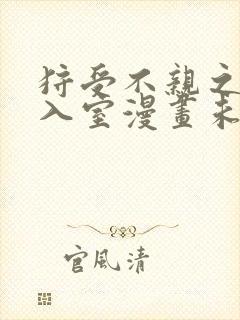 狩受不親之
入室漫畫未
官風清